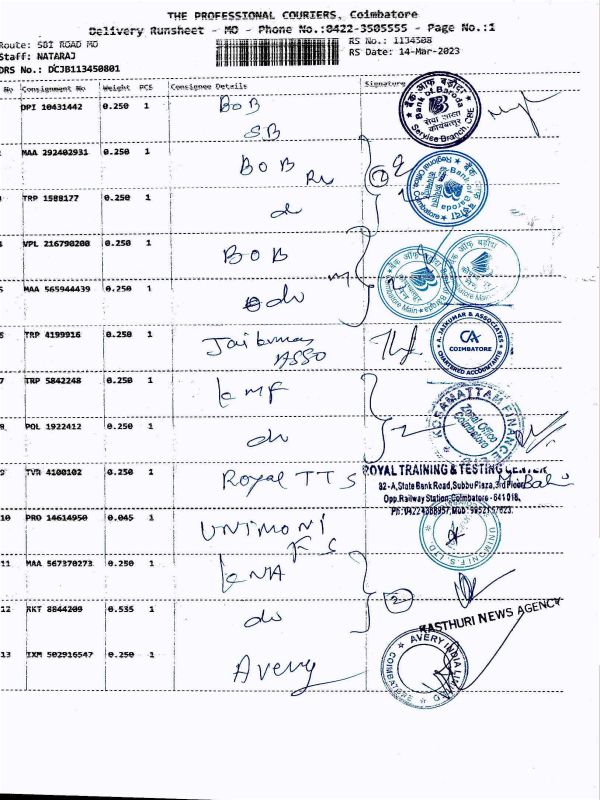 THE PROFESSIONAL COURIERS, Coimbatore
Delivery Runsheet - MO - Phone No.:0422-3505555 - Page No.:1
Route: SBI ROAD MO
RS No.: 1134508
Staff: NATARAJ
RS Date: 14-Mar-2023
DRS No.: DCJB113450801
No Consignment No Weight PCS Consignee Details Signature
DPI 10431442 0.250 1 BOB
SB
बैंक ऑफ़ बड़ौदा
Bank of Baroda
सेवा शाखा
कोयंबत्तूर
Service Branch, CBE
MAA 292402931 0.250 1 BOB
2
Bank of Baroda
Regional Office, Coimbatore
TRP 1588177 0.250 1 do
VPL 216790200 0.250 1 BOB
बैंक ऑफ़ बड़ौदा
Coimbatore Main Bank of Baroda
5 MAA 565944439 0.250 1 do
6 TRP 4199916 0.250 1 Jaikumar
ASSO
A. JAIKUMAR & ASSOCIATES
CA
COIMBATORE
CHARTERED ACCOUNTANTS
7 TRP 5842248 0.250 1 KMF
KOSAMATTAM FINANCE
Zonal Office
Coimbatore
8 POL 1922412 0.250 1 do
9 TVR 4100102 0.250 1 Royal TTS
ROYAL TRAINING & TESTING CENTER
82-A, State Bank Road, Subbu Plaza, 3rd Floor
Opp. Railway Station, Coimbatore - 641 018.
10 PRO 14614950 0.045 1 UNIMONI
FS
UNIMONI F.S. LTD.
11 MAA 567370273 0.250 1 KNA
12 RKT 8844209 0.535 1 do
2
KASTHURI NEWS AGENCY
13 IXM 502916547 0.250 1 Avery
AVERY INDIA LIMITED
COIMBATORE